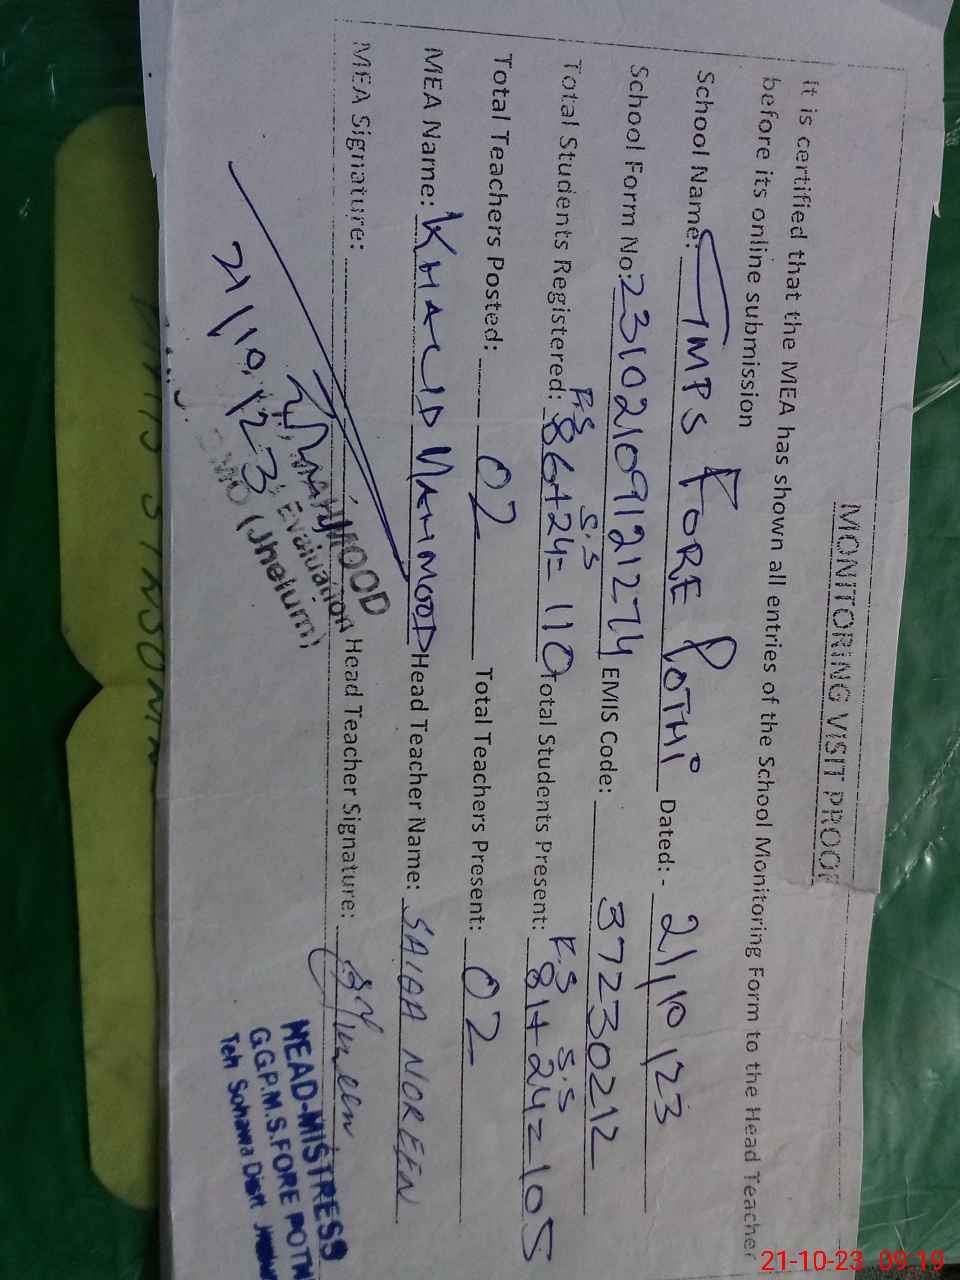 MONITORING VISIT PROOF
It is certified that the MEA has shown all entries of the School Monitoring Form to the Head Teacher
before its online submission
School Name: GMPS FORE POTHI Dated:- 21/10/23
School Form No: 23102109121274 EMIS Code: 37230212
F.S S.S F.S S.S
Total Students Registered: 86+24=110 Total Students Present: 81+24=105
Total Teachers Posted: 02 Total Teachers Present: 02
MEA Name: KHALID MAHMOOD Head Teacher Name: SAIAA NOREEN
MEA Signature: Head Teacher Signature:
21/10/23
MAHMOOD
Evaluation
(Jhelum)
HEAD-MISTRESS
G.G.P.M.S.FORE POTH
Teh Sohawa Distt
21-10-23 09:19